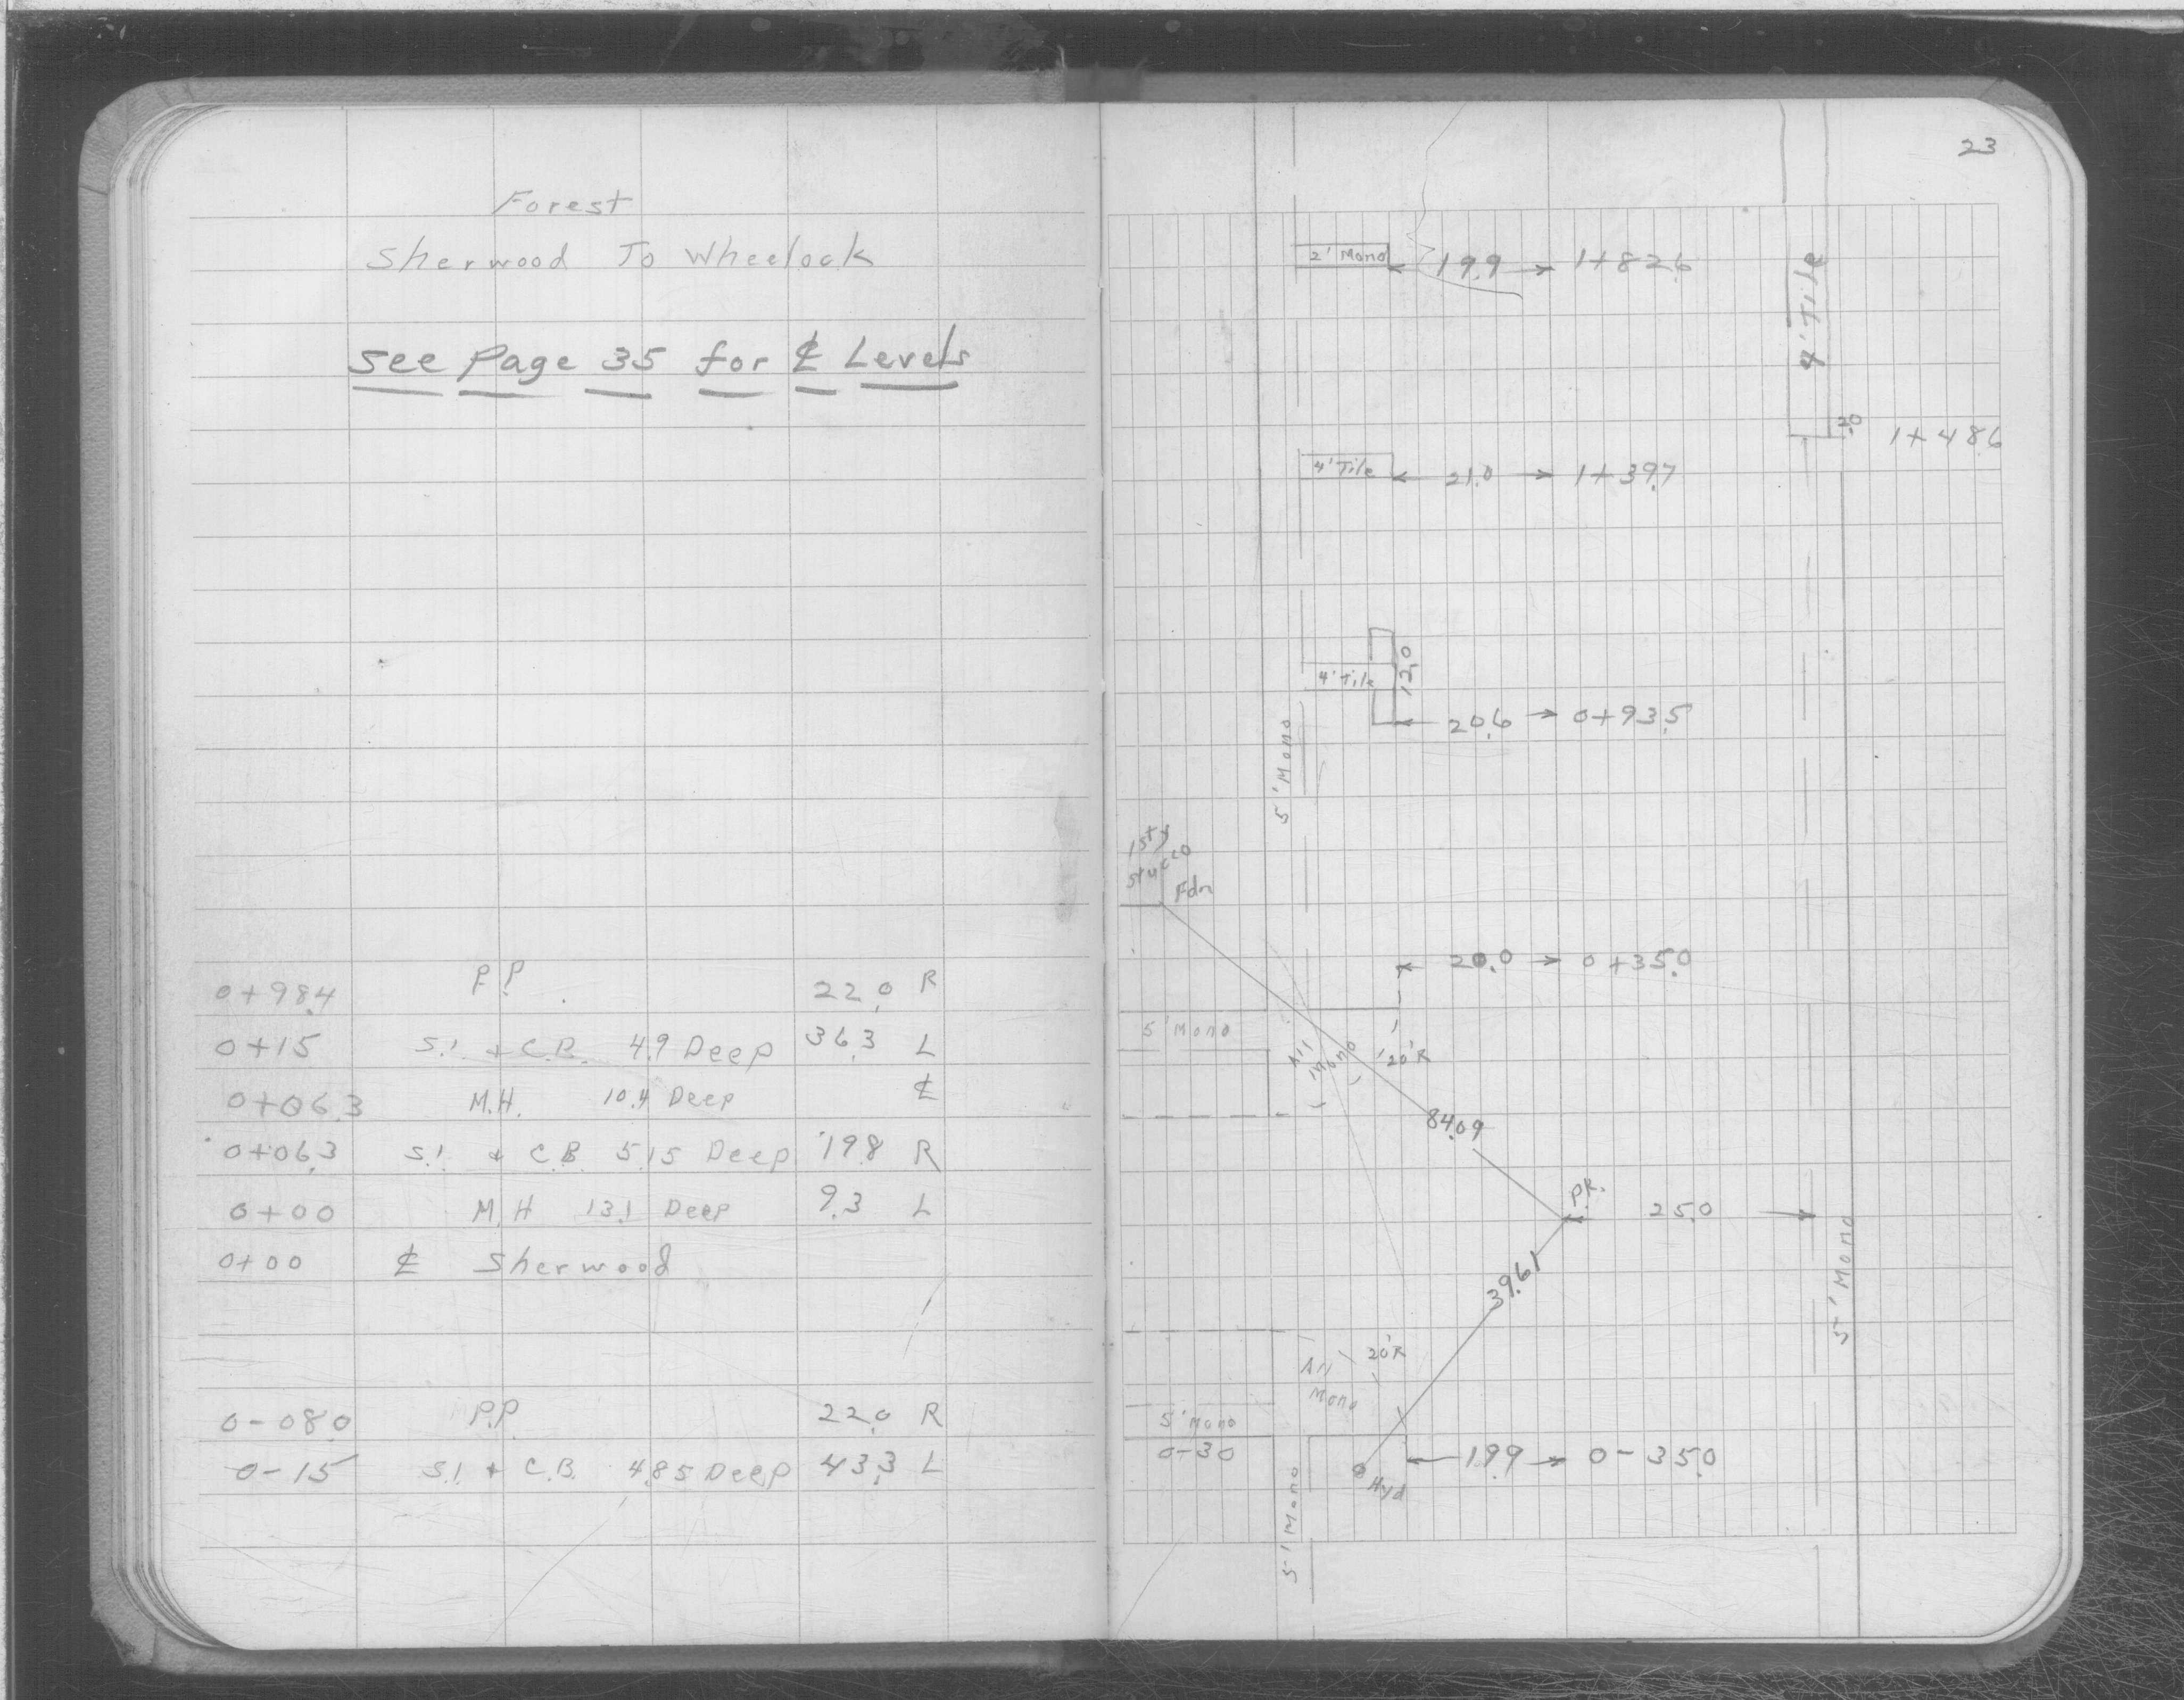 Forest
Sherwood To Wheelock
See Page 35 for ℄ Levels
0+98.4 P.P. 22.0 R
0+15 S.I. + C.B. 4.9 Deep 36.3 L
0+06.3 M.H. 10.4 Deep ℄
0+06.3 S.I. + C.B. 5.15 Deep 19.8 R
0+00 M.H 13.1 Deep 9.3 L
0+00 ℄ Sherwood
0-08.0 P.P. 22.0 R
0-15 S.I. + C.B. 4.85 Deep 43.3 L
23
2' Mono 19.9 1+82.6
4' Tile
2.0 1+48.6
4' Tile 21.0 1+39.7
4' Tile 12.0
20.6 0+93.5
5' Mono
1 sty
stucco
Fdn
20.0 0+35.0
5' Mono
All
Mono
20'R
84.09
P.K.
25.0
39.61
5' Mono
20'R
All
Mono
5' Mono
0-30
19.9 0-35.0
Hyd
5' Mono